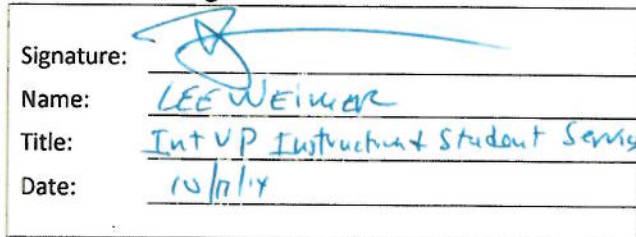 Signature:
Name: LEE WEIMER
Title: Int VP Instruction & Student Servis
Date: